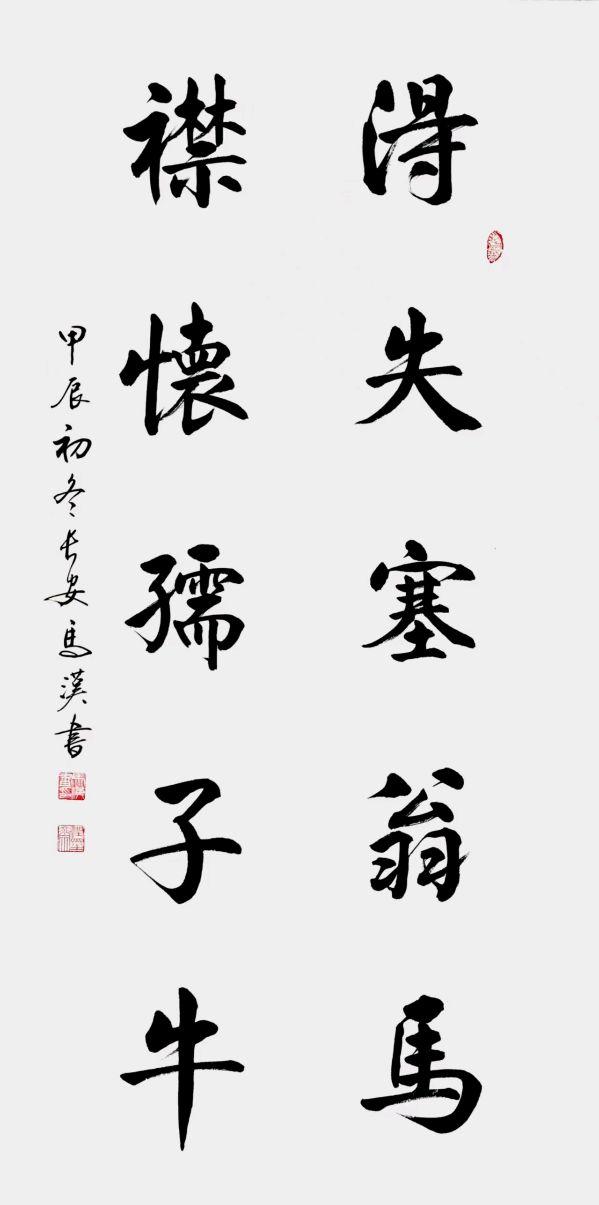 得失塞翁馬
襟懷孺子牛
甲辰初冬长安馬漢書